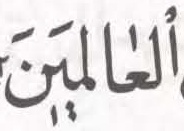 ٱلعَٰالَمِيَنَ